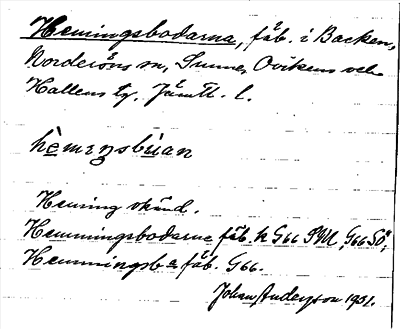 Hemingsbodarna, fäb. i Backen,
Norderöns sn, Sunne, Ovikens och
Hallens tg, Jämtl. l.
hèmiŋsbùan
Heming okänd.
Hemmingsbodarne fäb. k G66 SM, G66 SÖ,
Hemmingsb a fäb. G66.
Johan Anderson 1931.